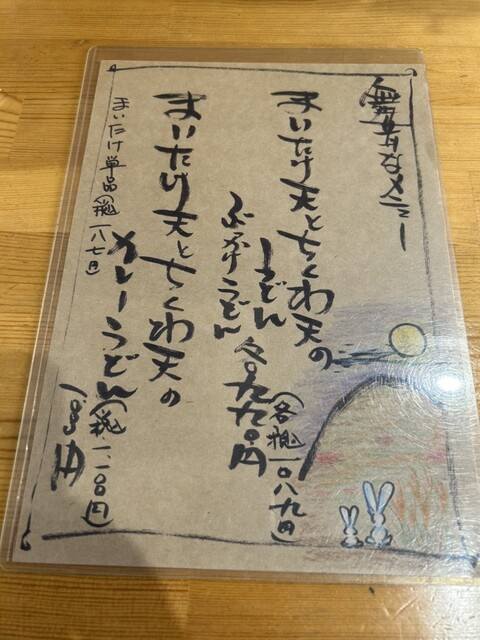 舞茸なメニュー
まいたけ天とちくわ天の
うどん
ぶっかけうどん 各九九〇円
(各税込一〇八九円)
まいたけ天とちくわ天の
カレーうどん
(税込一、一〇〇円)
まいたけ単品(税込一八七円)